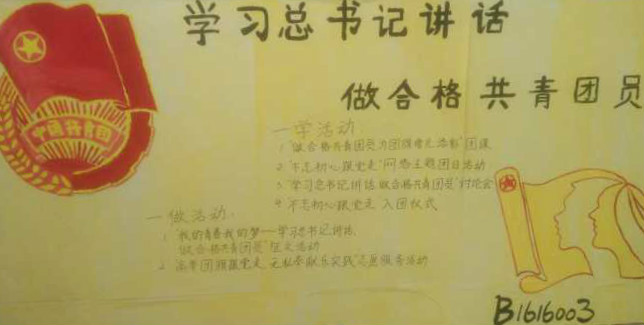 学习总书记讲话
做合格共青团员
中国共青团
一学活动
1. "做合格共青团员为团旗增光添彩"团课
2. "不忘初心跟党走"网络主题团日活动
3. "学习总书记讲话 做合格共青团员"讨论会
4. 不忘初心跟党走 入团仪式
一做活动:
1. "我的青春我的梦——学习总书记讲话
做合格共青团员"征文活动
2. 高举团旗跟党走 无私奉献乐实践"志愿服务活动
B1616003